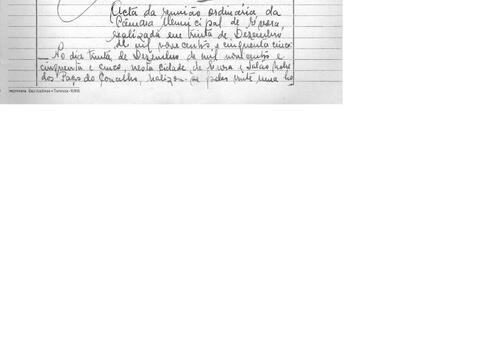 Acta da reunião ordinária da
Câmara Municipal de Évora,
realizada em trinta de Dezembro
de mil novecentos e cinquenta e cinco
No dia trinta de Dezembro de mil novecentos e
cinquenta e cinco, nesta cidade de Évora e Salão nobre
dos Paços do Concelho, realizou-se pelas vinte uma ho